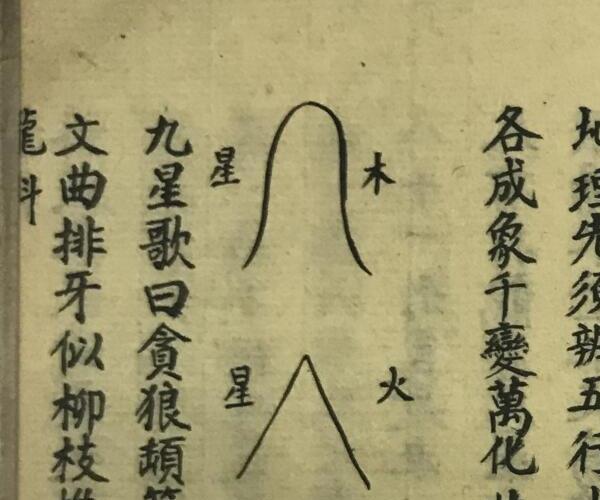 地理先須辨五行
各成象千變萬化
木星
火星
九星歌曰貪狼頓
文曲排牙似柳枝